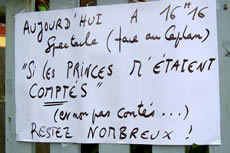 AUJOURD'HUI A 16H16
Spectacle (face au Caplan)
"SI LES PRINCES M'ÉTAIENT
COMPTÉS"
(et non pas contés...)
RESTEZ NOMBREUX !